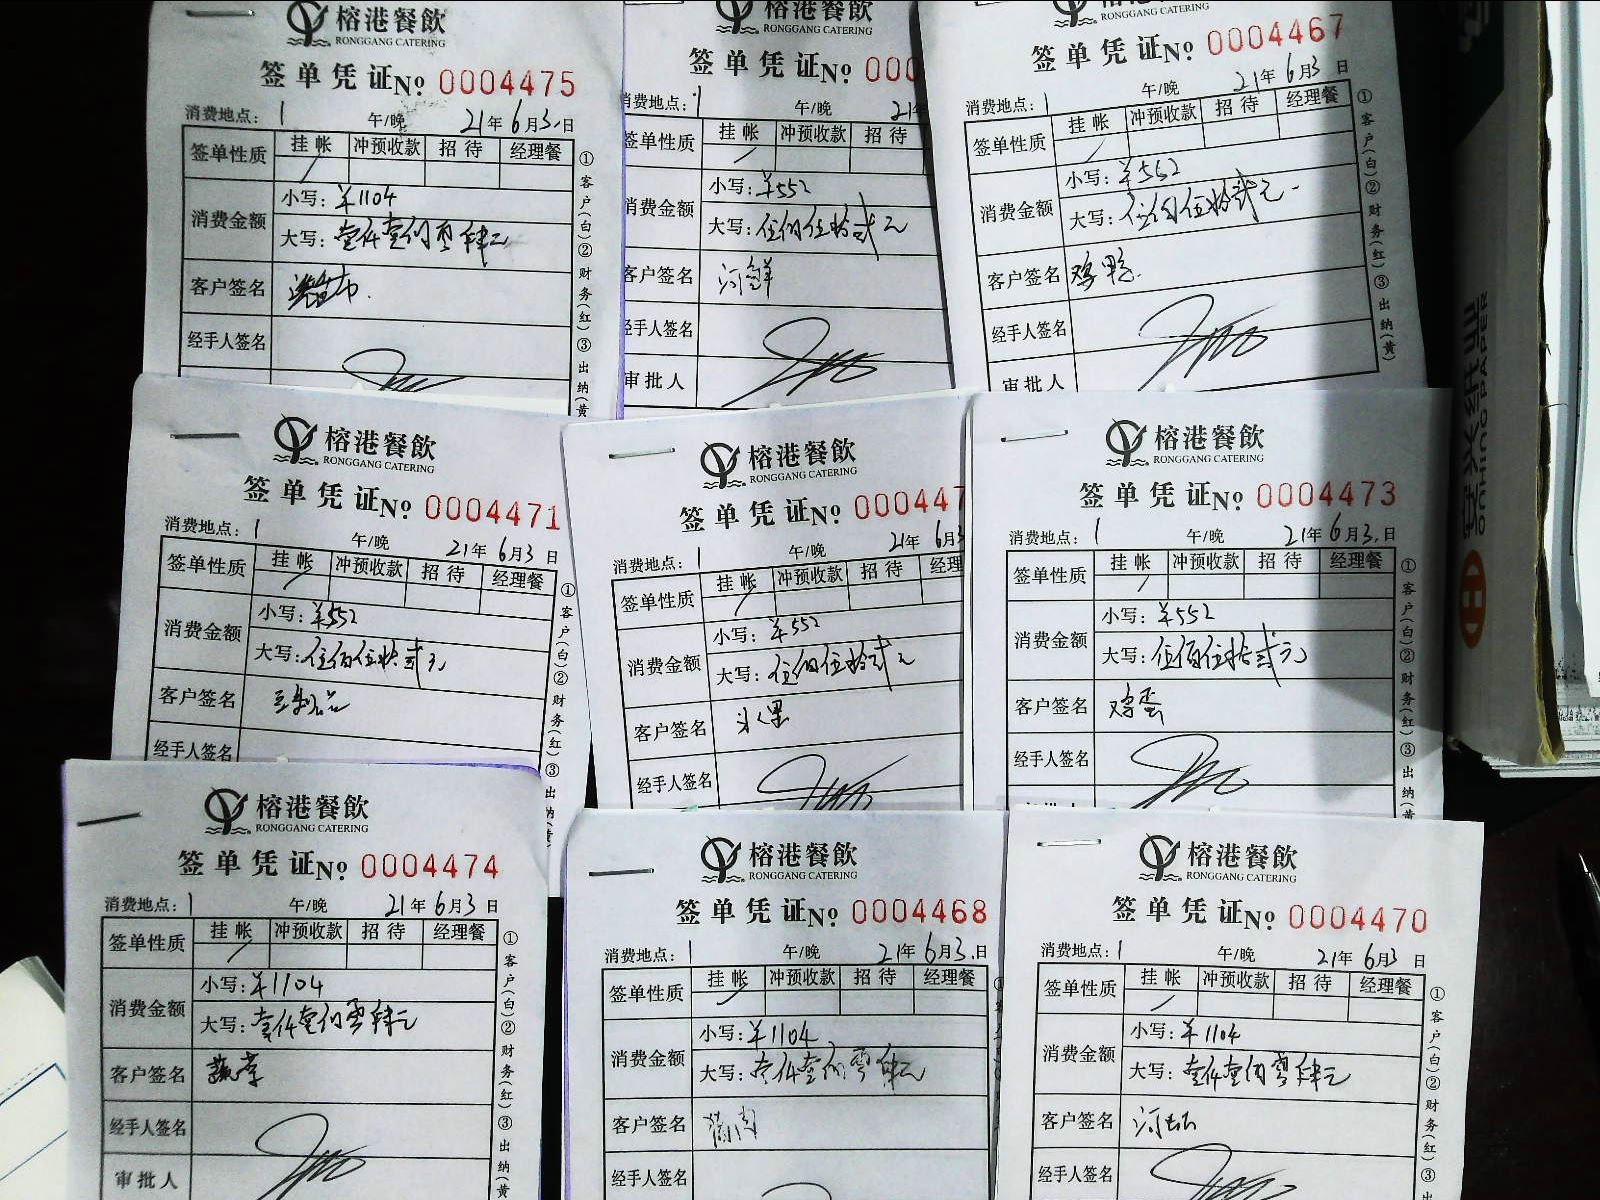 榕港餐飲
RONGGANG CATERING
签单凭证 No 0004475
消费地点: 1 午/晚 21年6月3日
签单性质 挂帐 冲预收款 招待 经理餐
消费金额 小写: ¥1104
大写: 壹仟壹佰零肆元
客户签名
经手人签名
①客户(白)②财务(红)③出纳(黄
榕港餐飲
RONGGANG CATERING
签单凭证 No 000
消费地点: 1 午/晚 21年
签单性质 挂帐 冲预收款
消费金额 小写: ¥552
大写: 伍佰伍拾贰元
客户签名 河鲜
经手人签名
审批人
榕港餐飲
RONGGANG CATERING
签单凭证 No 0004467
消费地点: 1 午/晚 21年6月3日
签单性质 挂帐 冲预收款 招待 经理餐
消费金额 小写: ¥552
大写: 伍佰伍拾贰元
客户签名 鸡鸭
经手人签名
审批人
①客户(白)②财务(红)③出纳(黄)
榕港餐飲
RONGGANG CATERING
签单凭证 No 0004471
消费地点: 1 午/晚 21年6月3日
签单性质 挂帐 冲预收款 招待 经理餐
消费金额 小写: ¥552
大写: 伍佰伍拾贰元
客户签名 豆制品
经手人签名
①客户(白)②财务(红)③出纳(黄
榕港餐飲
RONGGANG CATERING
签单凭证 No 000447
消费地点: 1 午/晚 21年6月3
签单性质 挂帐 冲预收款 招待 经理
消费金额 小写: ¥552
大写: 伍佰伍拾贰元
客户签名 水果
经手人签名
榕港餐飲
RONGGANG CATERING
签单凭证 No 0004473
消费地点: 1 午/晚 21年6月3日
签单性质 挂帐 冲预收款 招待 经理餐
消费金额 小写: ¥552
大写: 伍佰伍拾贰元
客户签名 鸡蛋
经手人签名
①客户(白)②财务(红)③出纳(黄
榕港餐飲
RONGGANG CATERING
签单凭证 No 0004474
消费地点: 1 午/晚 21年6月3日
签单性质 挂帐 冲预收款 招待 经理餐
消费金额 小写: ¥1104
大写: 壹仟壹佰零肆元
客户签名 蔬菜
经手人签名
审批人
①客户(白)②财务(红)③出纳(黄
榕港餐飲
RONGGANG CATERING
签单凭证 No 0004468
消费地点: 1 午/晚 21年6月3日
签单性质 挂帐 冲预收款 招待 经理餐
消费金额 小写: ¥1104
大写: 壹仟壹佰零肆元
客户签名 猪肉
经手人签名
榕港餐飲
RONGGANG CATERING
签单凭证 No 0004470
消费地点: 1 午/晚 21年6月3日
签单性质 挂帐 冲预收款 招待 经理餐
消费金额 小写: ¥1104
大写: 壹仟壹佰零肆元
客户签名
经手人签名
①客户(白)②财务(红)③出